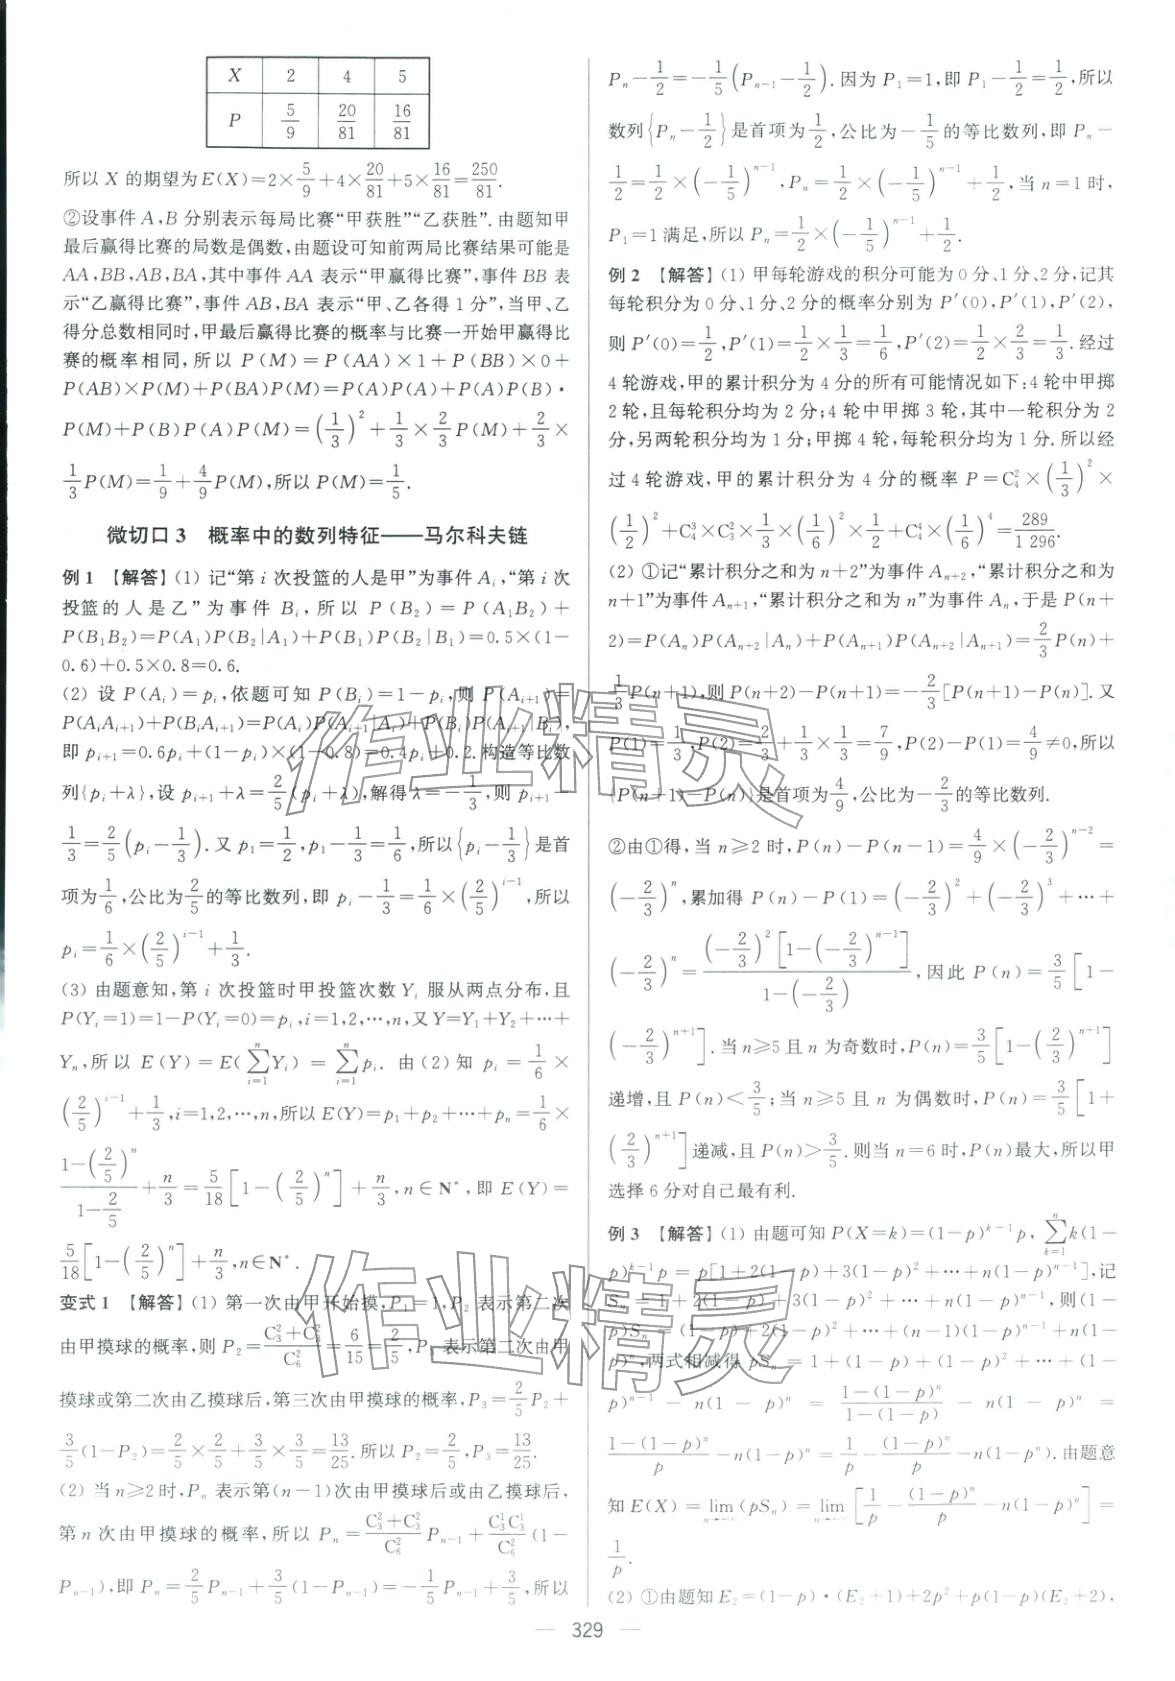 X 2 4 5
P 5/9 20/81 16/81
所以 X 的期望为 E(X)=2×5/9+4×20/81+5×16/81=250/81.
②设事件 A,B 分别表示每局比赛“甲获胜”“乙获胜”. 由题知甲
最后赢得比赛的局数是偶数,由题设可知前两局比赛结果可能是
AA,BB,AB,BA,其中事件 AA 表示“甲赢得比赛”,事件 BB 表
示“乙赢得比赛”,事件 AB,BA 表示“甲、乙各得 1 分”,当甲、乙
得分总数相同时,甲最后赢得比赛的概率与比赛一开始甲赢得比
赛的概率相同,所以 P(M)=P(AA)×1+P(BB)×0+
P(AB)×P(M)+P(BA)P(M)=P(A)P(A)+P(A)P(B)·
P(M)+P(B)P(A)P(M)=(1/3)^2+1/3×2/3P(M)+2/3×
1/3P(M)=1/9+4/9P(M),所以 P(M)=1/5.
微切口 3 概率中的数列特征——马尔科夫链
例 1 【解答】(1) 记“第 i 次投篮的人是甲”为事件 A_i,“第 i 次
投篮的人是乙”为事件 B_i,所以 P(B_2)=P(A_1B_2)+
P(B_1B_2)=P(A_1)P(B_2|A_1)+P(B_1)P(B_2|B_1)=0.5×(1-
0.6)+0.5×0.8=0.6.
(2) 设 P(A_i)=p_i,依题可知 P(B_i)=1-p_i,则 P(A_{i+1})=
P(A_iA_{i+1})+P(B_iA_{i+1})=P(A_i)P(A_{i+1}|A_i)+P(B_i)P(A_{i+1}|B_i),
即 p_{i+1}=0.6p_i+(1-p_i)×(1-0.8)=0.4p_i+0.2. 构造等比数
列{p_i+λ},设 p_{i+1}+λ=2/5(p_i+λ),解得 λ=-1/3,则 p_{i+1}-
1/3=2/5(p_i-1/3). 又 p_1=1/2,p_1-1/3=1/6,所以{p_i-1/3}是首
项为1/6,公比为2/5的等比数列,即 p_i-1/3=1/6×(2/5)^{i-1},所以
p_i=1/6×(2/5)^{i-1}+1/3.
(3) 由题意知,第 i 次投篮时甲投篮次数 Y_i 服从两点分布,且
P(Y_i=1)=1-P(Y_i=0)=p_i,i=1,2,…,n,又 Y=Y_1+Y_2+…+
Y_n,所以 E(Y)=E(∑_{i=1}^{n}Y_i)=∑_{i=1}^{n}p_i. 由(2)知 p_i=1/6×
(2/5)^{i-1}+1/3,i=1,2,…,n,所以 E(Y)=p_1+p_2+…+p_n=1/6×
(1-(2/5)^n)/(1-2/5)+n/3=5/18[1-(2/5)^n]+n/3,n∈N*,即 E(Y)=
5/18[1-(2/5)^n]+n/3,n∈N*.
变式 1 【解答】(1) 第一次由甲开始摸,P_1=1,P_2 表示第二次
由甲摸球的概率,则 P_2=(C_3^2+C_3^2)/C_6^2=6/15=2/5,P_3 表示第二次由甲
摸球或第二次由乙摸球后,第三次由甲摸球的概率,P_3=2/5P_2+
3/5(1-P_2)=2/5×2/5+3/5×3/5=13/25. 所以 P_2=2/5,P_3=13/25.
(2) 当 n≥2 时,P_n 表示第(n-1)次由甲摸球后或由乙摸球后,
第 n 次由甲摸球的概率,所以 P_n=(C_3^2+C_3^2)/C_6^2 P_{n-1}+C_3^1C_3^1/C_6^2(1-
P_{n-1}),即 P_n=2/5P_{n-1}+3/5(1-P_{n-1})=-1/5P_{n-1}+3/5,所以
P_n-1/2=-1/5(P_{n-1}-1/2). 因为 P_1=1,即 P_1-1/2=1/2,所以
数列{P_n-1/2}是首项为1/2,公比为-1/5的等比数列,即 P_n-
1/2=1/2×(-1/5)^{n-1},P_n=1/2×(-1/5)^{n-1}+1/2,当 n=1 时,
P_1=1 满足,所以 P_n=1/2×(-1/5)^{n-1}+1/2.
例 2 【解答】(1) 甲每轮游戏的积分可能为 0 分、1 分、2 分,记其
每轮积分为 0 分、1 分、2 分的概率分别为 P′(0),P′(1),P′(2),
则 P′(0)=1/2,P′(1)=1/2×1/3=1/6,P′(2)=1/2×2/3=1/3. 经过
4 轮游戏,甲的累计积分为 4 分的所有可能情况如下:4 轮中甲掷
2 轮,且每轮积分均为 2 分;4 轮中甲掷 3 轮,其中一轮积分为 2
分,另两轮积分均为 1 分;甲掷 4 轮,每轮积分均为 1 分. 所以经
过 4 轮游戏,甲的累计积分为 4 分的概率 P=C_4^2×(1/3)^2×
(1/2)^2+C_4^3×C_3^1×1/3×(1/6)^2×1/2+C_4^4×(1/6)^4=289/1 296.
(2) ①记“累计积分之和为 n+2”为事件 A_{n+2},“累计积分之和为
n+1”为事件 A_{n+1},“累计积分之和为 n”为事件 A_n,于是 P(n+
2)=P(A_n)P(A_{n+2}|A_n)+P(A_{n+1})P(A_{n+2}|A_{n+1})=2/3P(n)+
1/3P(n+1),则 P(n+2)-P(n+1)=-2/3[P(n+1)-P(n)]. 又
P(1)=1/3,P(2)=2/3+1/3×1/3=7/9,P(2)-P(1)=4/9≠0,所以
{P(n+1)-P(n)}是首项为4/9,公比为-2/3的等比数列.
②由①得,当 n≥2 时,P(n)-P(n-1)=4/9×(-2/3)^{n-2}=
(-2/3)^n,累加得 P(n)-P(1)=(-2/3)^2+(-2/3)^3+…+
(-2/3)^n=((-2/3)^2[1-(-2/3)^{n-1}])/(1-(-2/3)),因此 P(n)=3/5[1-
(-2/3)^{n+1}]. 当 n≥5 且 n 为奇数时,P(n)=3/5[1-(2/3)^{n+1}]
递增,且 P(n)<3/5;当 n≥5 且 n 为偶数时,P(n)=3/5[1+
(2/3)^{n+1}]递减,且 P(n)>3/5. 则当 n=6 时,P(n)最大,所以甲
选择 6 分对自己最有利.
例 3 【解答】(1) 由题可知 P(X=k)=(1-p)^{k-1}p,∑_{k=1}^{n}k(1-
p)^{k-1}p=p[1+2(1-p)+3(1-p)^2+…+n(1-p)^{n-1}],记
S_n=1+2(1-p)+3(1-p)^2+…+n(1-p)^{n-1},则(1-
p)S_n=(1-p)+2(1-p)^2+…+(n-1)(1-p)^{n-1}+n(1-
p)^n,两式相减得 pS_n=1+(1-p)+(1-p)^2+…+(1-
p)^{n-1}-n(1-p)^n=(1-(1-p)^n)/(1-(1-p))-n(1-p)^n=
(1-(1-p)^n)/p-n(1-p)^n=1/p-(1-p)^n/p-n(1-p^n). 由题意
知 E(X)=lim_{n→∞}(pS_n)=lim_{n→∞}[1/p-(1-p)^n/p-n(1-p)^n]=
1/p.
(2) ①由题知 E_2=(1-p)·(E_2+1)+2p^2+p(1-p)(E_2+2),
— 329 —
作业精灵
作业精灵